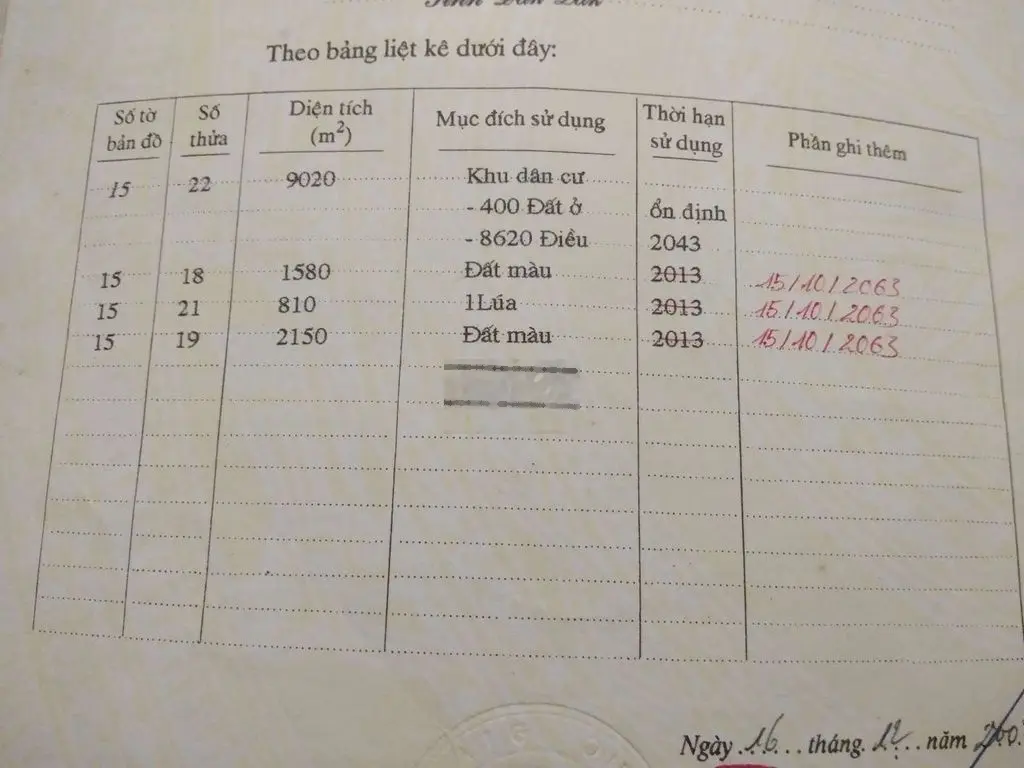 Theo bảng liệt kê dưới đây:
Số tờ bản đồ Số thửa Diện tích (m²) Mục đích sử dụng Thời hạn sử dụng Phần ghi thêm
15 22 9020 Khu dân cư
- 400 Đất ở ổn định
- 8620 Điều 2043
15 18 1580 Đất màu 2013 15/10/2063
15 21 810 1Lúa 2013 15/10/2063
15 19 2150 Đất màu 2013 15/10/2063
Ngày 16 tháng 12 năm